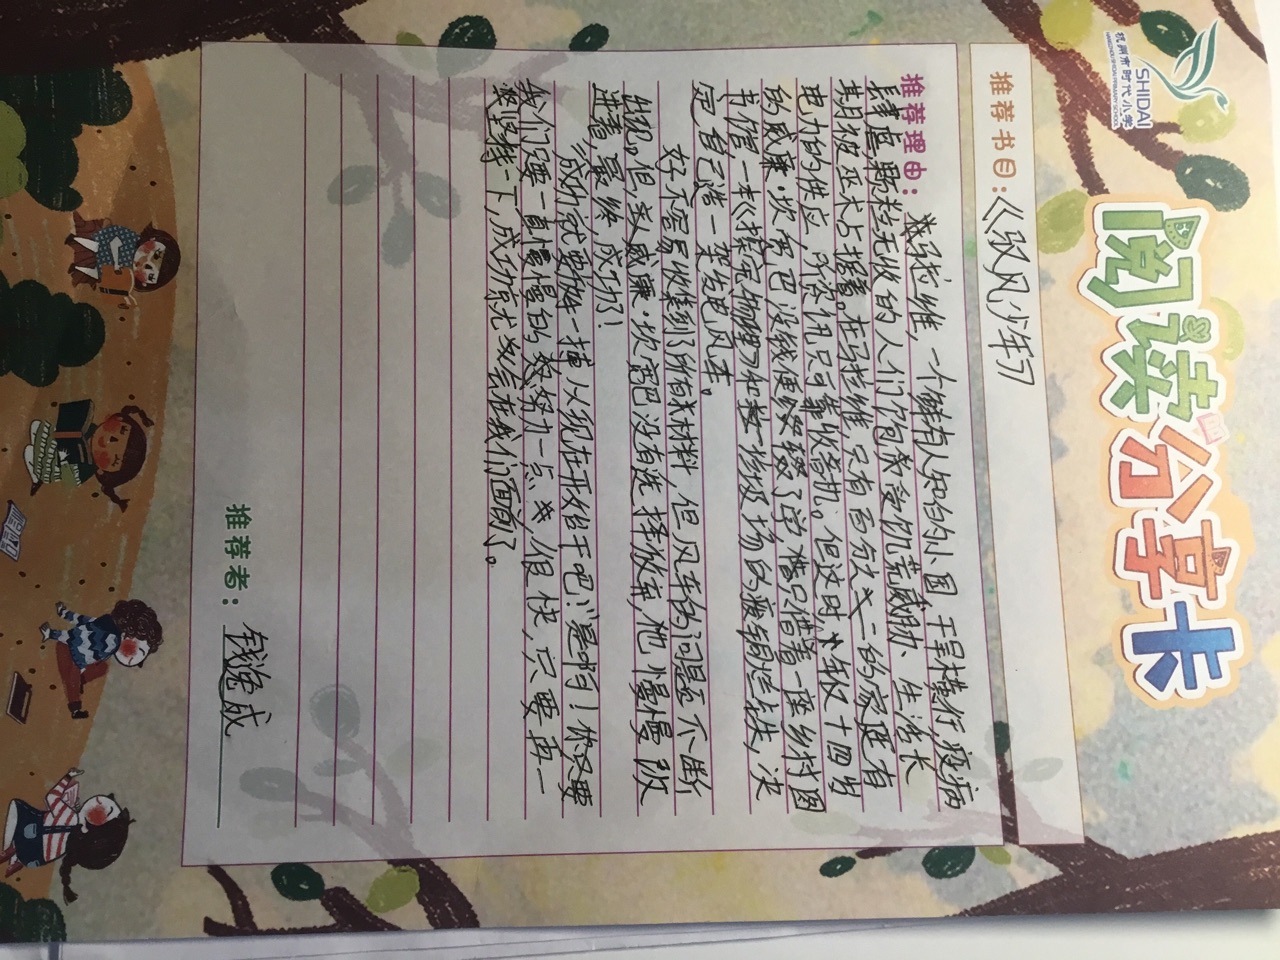 杭州市时代小学
SHIDAI
HANGZHOU SHIDAI PRIMARY SCHOOL
阅读分享卡
推荐书目：《驭风少年》
推荐理由：
一个鲜有人知的小国，干旱横行，疫病
肆虐，颗粒无收的人们饱受饥荒威胁、生活长
期被巫术占据着。在马拉维，只有百分之二的家庭有
电力的供应，所有信息只可靠收音机。但这时，年仅十四岁
的威廉·坎宽巴没钱便辍了学，借着一座乡村图
书馆，一本《探究物理》和一垃圾场的废铜烂铁，决
定自己造一架发电风车。
好不容易收集到了所有材料，但风车的问题不断
出现。但是威廉·坎宽巴没有选择放弃，他慢慢改
进着，最终，成功了！
“成功就要放手一搏，从现在开始干吧！”是啊！你只要
我们只要一直慢慢的努努力一点点，很快，只要再一
坚持一下，成功就会在我们面前了。
推荐者：钱逸成